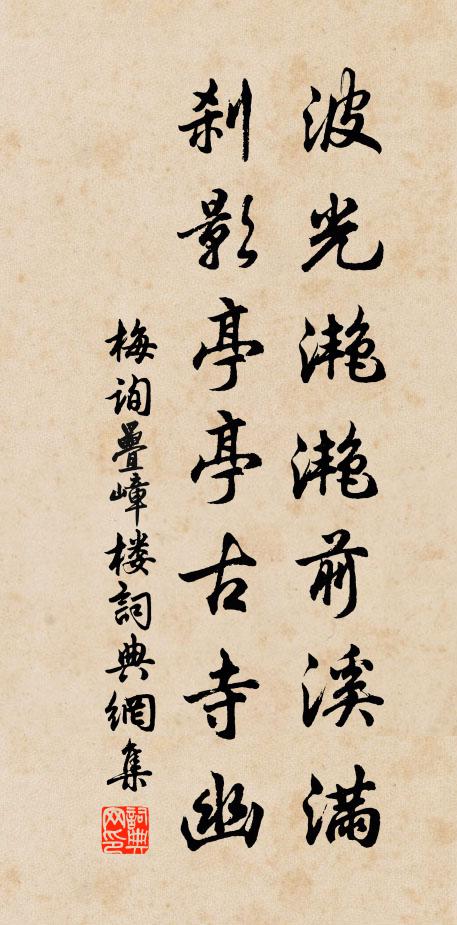 波光滟滟前溪满
刹影亭亭古寺幽
梅询疊嶂楼詞典網集
詞典
网印